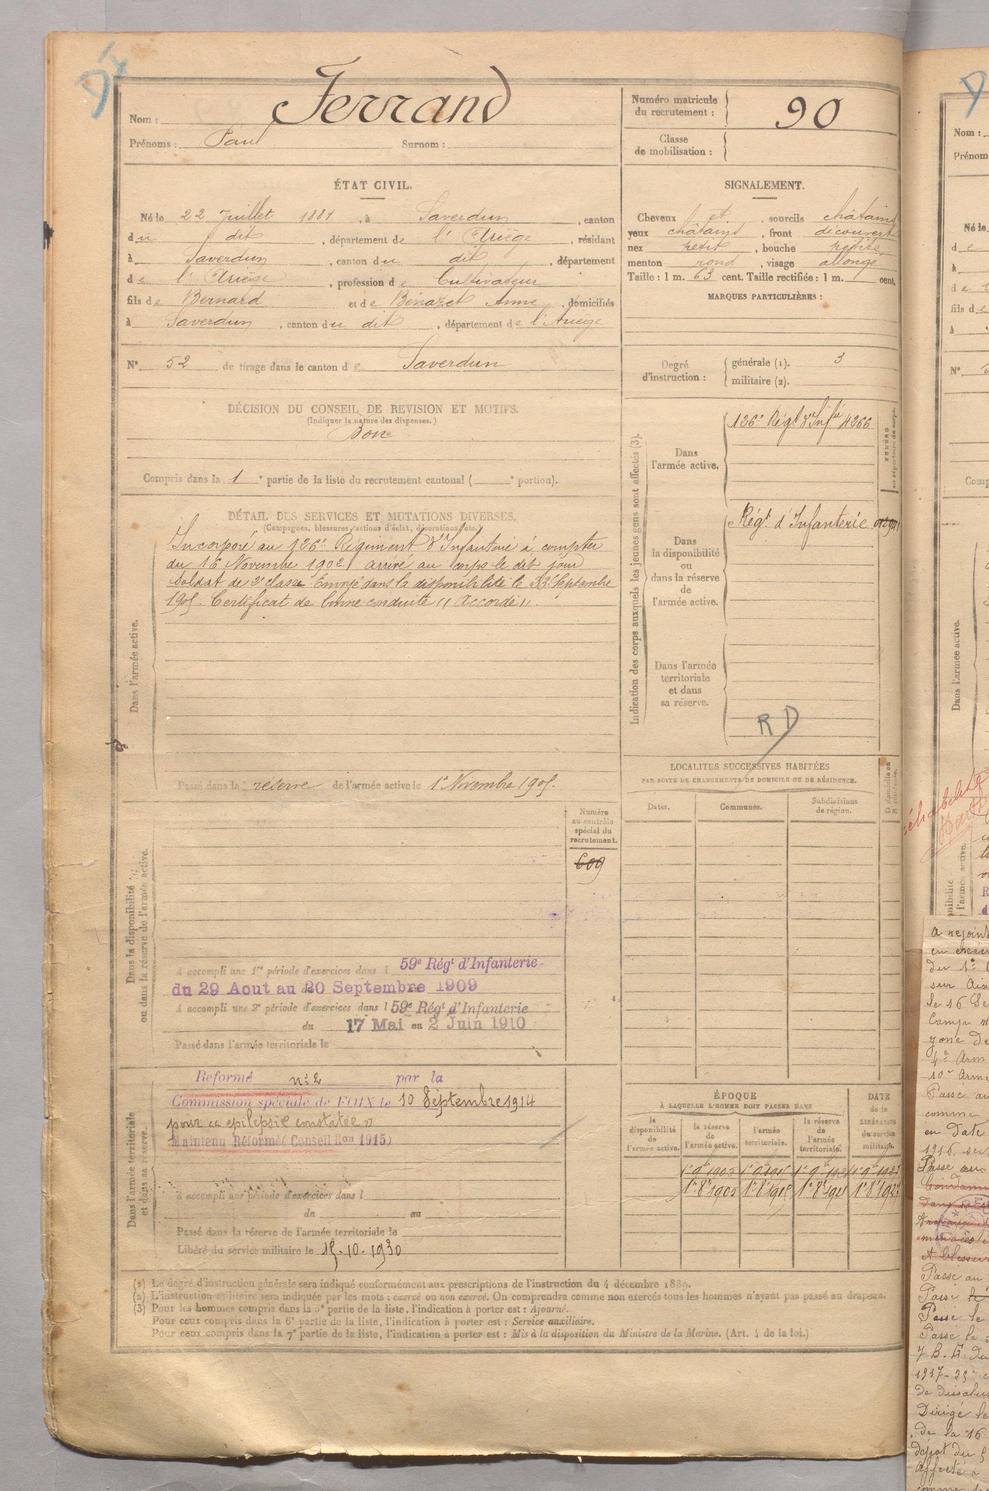 Nom : Ferrand
Prénoms : Paul Surnom :
Numéro matricule
du recrutement : 90
Classe
de mobilisation :
ÉTAT CIVIL.
Né le 22 Juillet 1881, à Saverdun, canton
du dit, département de l'Ariège, résidant
à Saverdun, canton du dit, département
de l'Ariège, profession de Cultivateur
fils de Bernard et de Benazet Anne, domiciliés
à Saverdun, canton du dit, département de l'Ariège
N° 52 de tirage dans le canton de Saverdun
SIGNALEMENT.
Cheveux et, sourcils châtains
yeux châtains, front découvert
nez petit, bouche petite
menton rond, visage allongé
Taille : 1 m. 63 cent. Taille rectifiée : 1 m. cent.
MARQUES PARTICULIÈRES :
Degré
d'instruction :
générale (1). 3
militaire (2).
DÉCISION DU CONSEIL DE REVISION ET MOTIFS.
(Indiquer la nature des dispenses.)
Bon
Compris dans la 1e partie de la liste du recrutement cantonal ( e portion).
DÉTAIL DES SERVICES ET MUTATIONS DIVERSES.
(Campagnes, blessures, actions d'éclat, décorations, etc.)
Incorporé au 126e Régiment d'Infanterie à compter
du 16 Novembre 1902 arrivé au corps le dit jour
soldat de 2e classe. Envoyé dans la disponibilité le 23 Septembre
1905. Certificat de bonne conduite "Accordé".
Dans l'armée active.
Passé dans la réserve de l'armée active le 1er Novembre 1905.
Indication des corps auxquels les jeunes gens sont affectés (3).
Dans
l'armée active.
126e Régt d'Infie 4266
Dans
la disponibilité
ou
dans la réserve
de
l'armée active.
Régt d'Infanterie
Dans l'armée
territoriale
et dans
sa réserve.
RD
LOCALITÉS SUCCESSIVES HABITÉES
PAR SUITE DE CHANGEMENTS DE DOMICILE OU DE RÉSIDENCE.
Dates. Communes. Subdivisions
de région.
Numéro
au contrôle
spécial du
recrutement.
609
Dans la disponibilité
ou dans la réserve de l'armée active.
A accompli une 1re période d'exercices dans l 59e Régt d'Infanterie
du 29 Aout au 20 Septembre 1909
A accompli une 2e période d'exercices dans l 59e Régt d'Infanterie
du 17 Mai au 2 Juin 1910
Passé dans l'armée territoriale le
Dans l'armée territoriale
et dans sa réserve.
Réformé n° 2 par la
Commission spéciale de FOIX le 10 Septembre 1914
pour "épilepsie constatée"
Maintenu Réformé (Conseil Ron 1915)
A accompli une période d'exercices dans l
du au
Passé dans la réserve de l'armée territoriale le
Libéré du service militaire le 15.10.1930
ÉPOQUE
À LAQUELLE L'HOMME DOIT PASSER DANS
DATE
de la
LIBÉRATION
du service
militaire.
la
disponibilité
de
l'armée active.
la réserve
de
l'armée active.
l'armée
territoriale.
la réserve
de
l'armée
territoriale.
(1) Le degré d'instruction générale sera indiqué conformément aux prescriptions de l'instruction du 4 décembre 1889.
(2) L'instruction militaire sera indiquée par les mots : exercé ou non exercé. On comprendra comme non exercés tous les hommes n'ayant pas passé au drapeau.
(3) Pour les hommes compris dans la 5e partie de la liste, l'indication à porter est : Ajourné.
Pour ceux compris dans la 6e partie de la liste, l'indication à porter est : Service auxiliaire.
Pour ceux compris dans la 7e partie de la liste, l'indication à porter est : Mis à la disposition du Ministre de la Marine. (Art. 4 de la loi.)